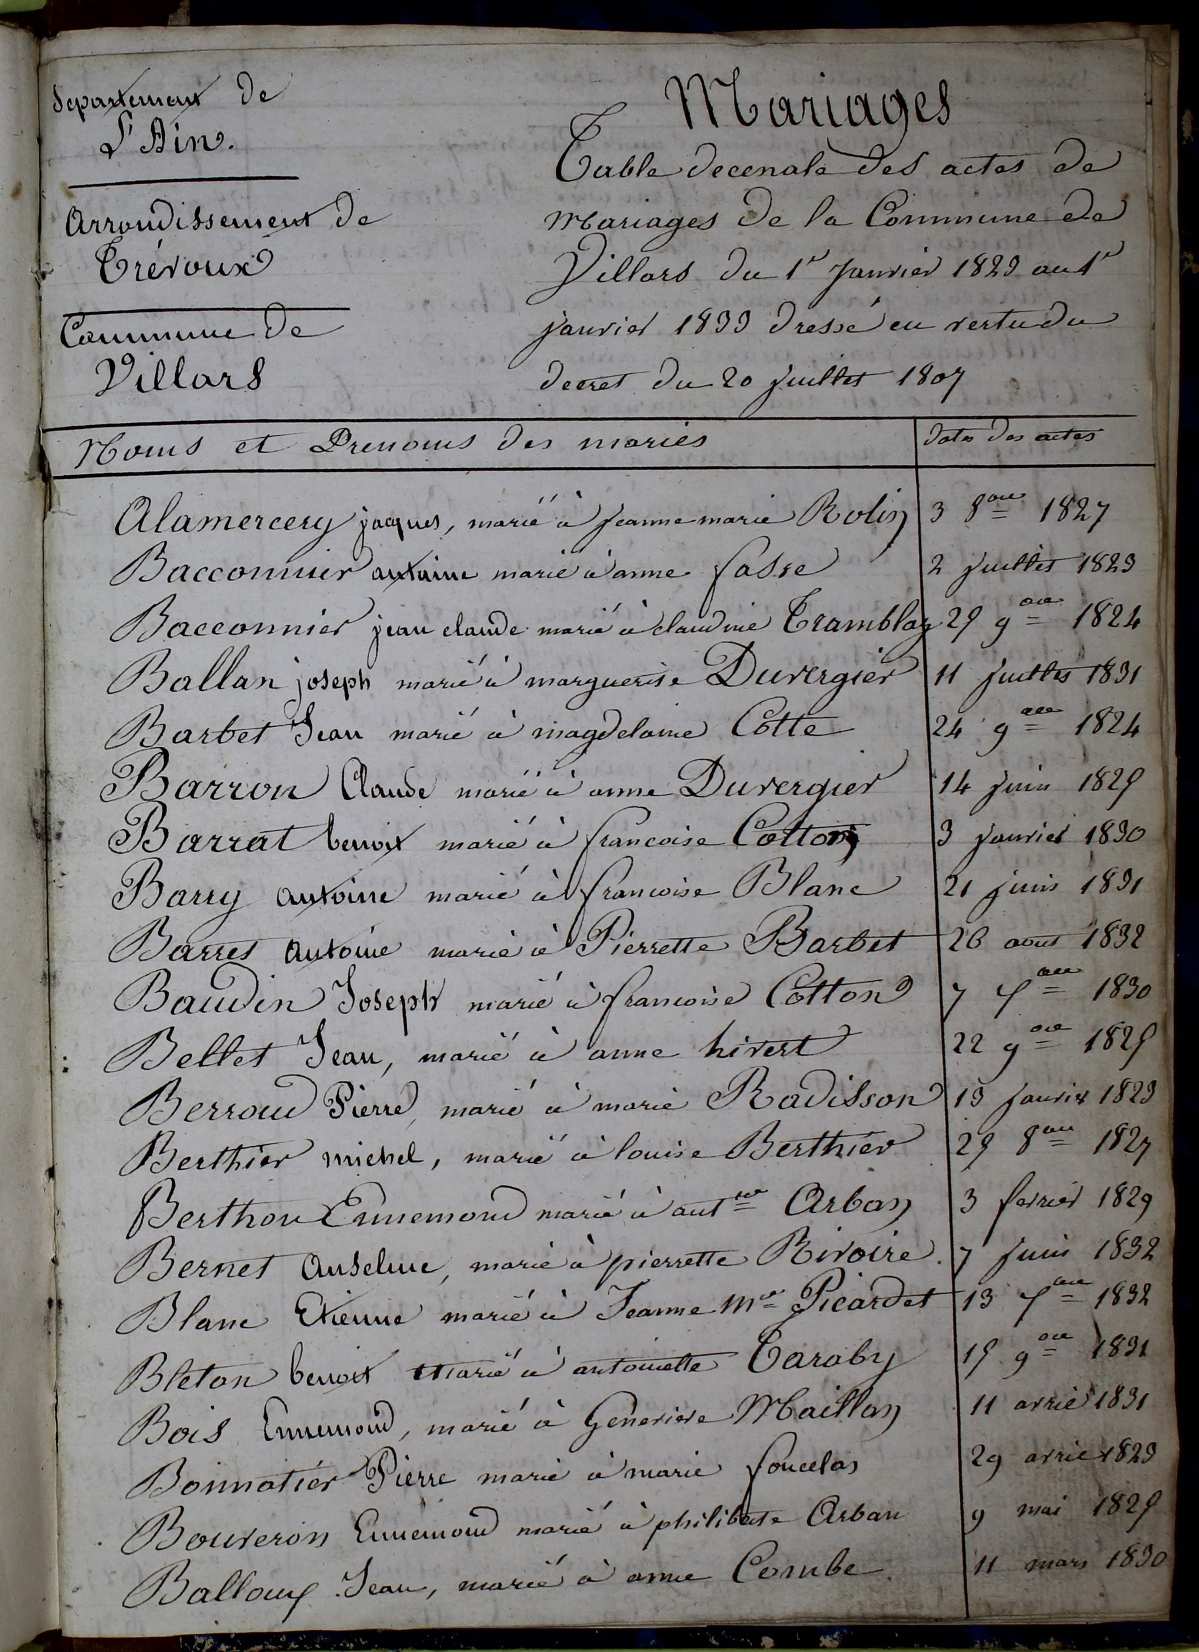 Departement de
L'Ain.
Arrondissement de
Trévoux
Commune de
Villars
Mariages
Table decenale des actes de
Mariages de la Commune de
Villars du 1er Janvier 1823 au 1er
janvier 1833 dressé en vertu du
decret du 20 juillet 1807
Noms et Prenoms des mariés
date des actes
Alamercery jacques, marié à jeanne marie Rolin 3 8bre 1827
Bacconnier antoine marié à anne fasse 2 juillet 1823
Bacconnier jean claude marié à claudine Tramblay 25 9bre 1824
Ballan joseph marié à marguerite Duvergier 11 juillet 1831
Barbet Jean marié à magdelaine Cotte 24 9bre 1824
Barron Claude marié à anne Duvergier 14 juin 1825
Barrat benoit marié à francoise Cotton 3 janvier 1830
Barry antoine marié à francoise Blanc 21 juin 1831
Barres antoine marié à Pierrette Barbet 26 aout 1832
Baudin Joseph marié à francoise Cotton 7 7bre 1830
Bellet Jean, marié à anne hivert 22 9bre 1825
Berroud Pierre, marié à marie Radisson 13 janvier 1823
Berthier michel, marié à louise Berthier 25 8bre 1827
Berthon Ennemond marié à antte Arban 3 fevrier 1829
Bernet Anselme, marié à pierrette Rivoire. 7 juin 1832
Blanc Etienne marié à Jeanne Mie Picardet 13 7bre 1832
Bleton benoit marié à antoinette Taraby 15 9bre 1831
Bois Ennemond, marié à Genevieve Maillan 11 avril 1831
Bonnatier Pierre marié à marie 29 avril 1823
Bouveron Ennemond marié à philiberte Arban 9 mai 1825
Balloux Jean, marié à anne Combe. 11 mars 1830